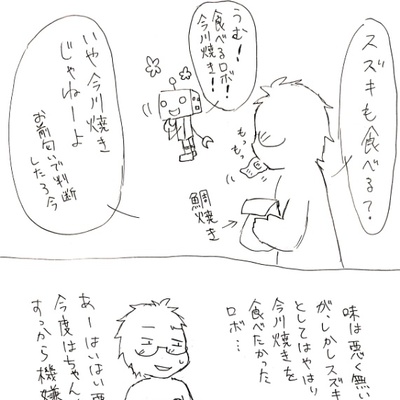 スズキも食べる?
うむ!
食べるロボ!
今川焼き!!
もっもっ
鯛焼き
いや今川焼き
じゃねーよ
お前匂いで判断
したろ今
味は悪く無い
が、しかしスズキ
としてはやはり
今川焼きを
食べたかった
ロボ…
あーはいはい
今度はちゃん
すっから機嫌